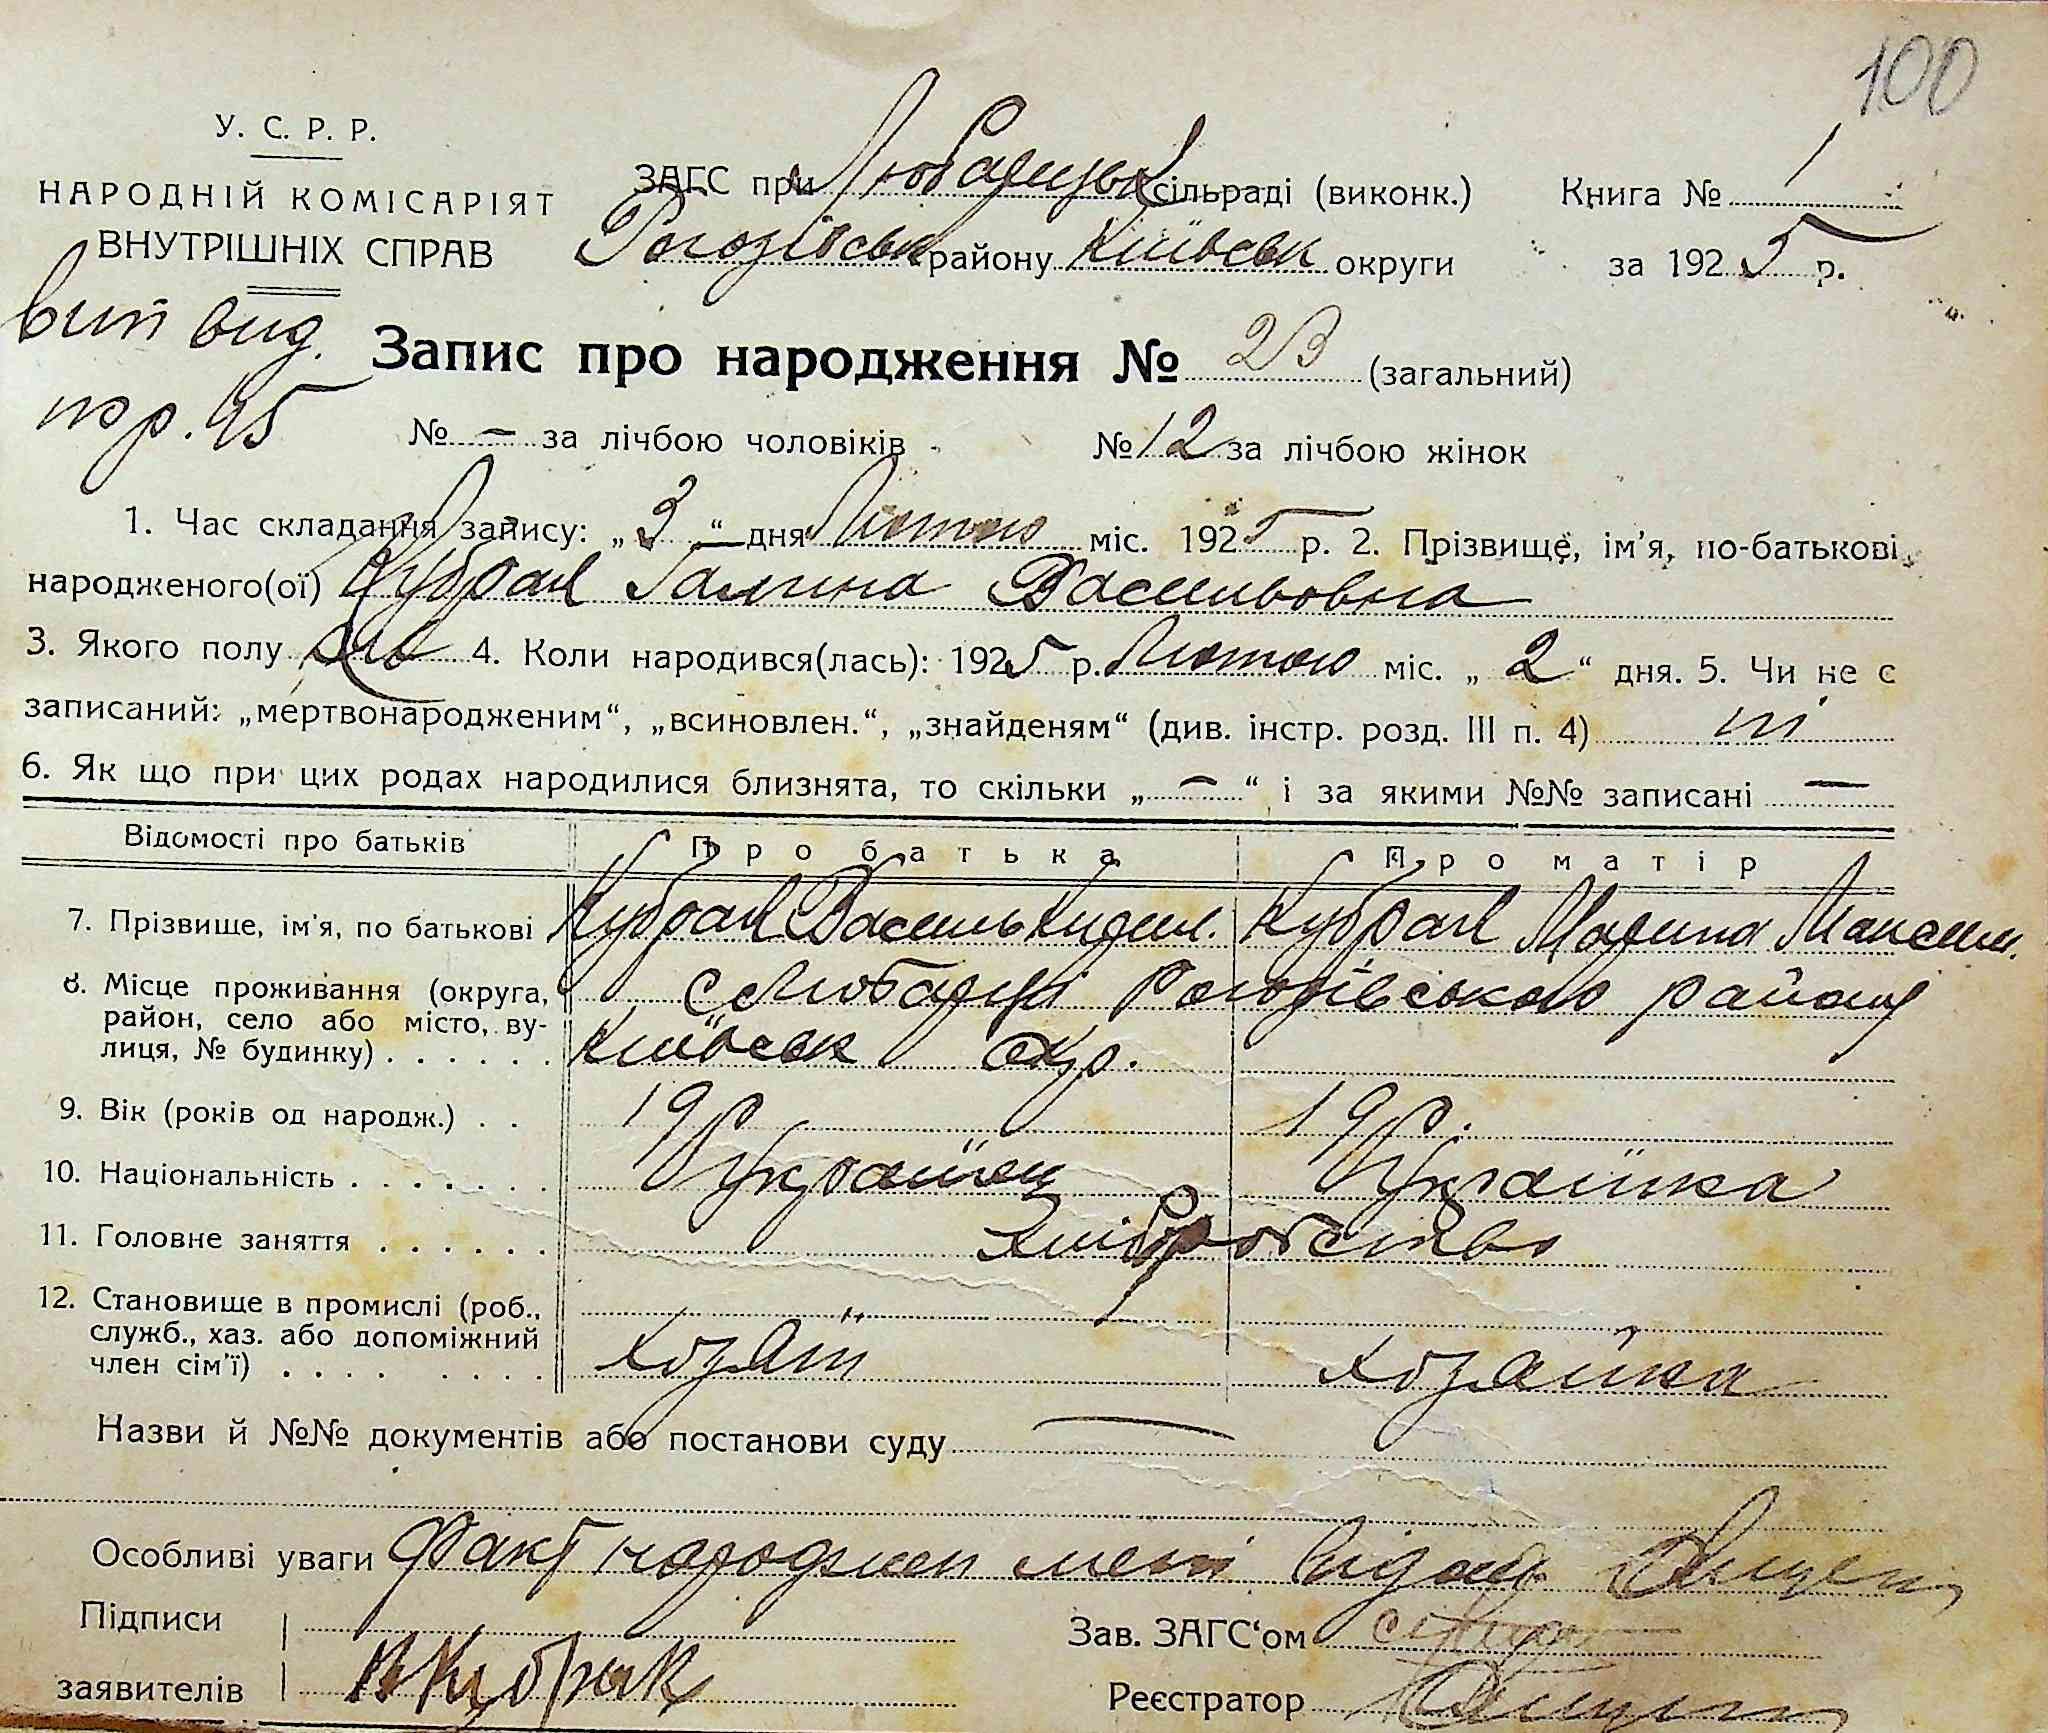 100
У. С. Р. Р.
НАРОДНІЙ КОМІСАРІЯТ
ВНУТРІШНІХ СПРАВ
ЗАГС при Любарецьк сільраді (виконк.) Книга № 1
Рогозівськ району Київськ округи за 1925 р.
вит вид.
Запис про народження № 23 (загальний)
№ — за лічбою чоловіків № 12 за лічбою жінок
1. Час складання запису: „3“ дня Лютого міс. 1925 р. 2. Прізвище, ім'я, по-батькові
народженого(ої) Кубрак Галина Васильовна
3. Якого полу 4. Коли народився(лась): 1925 р. Лютого міс. „2“ дня. 5. Чи не є
записаний: „мертвонародженим“, „всиновлен.“, „знайденям“ (див. інстр. розд. III п. 4) ні
6. Як що при цих родах народилися близнята, то скільки „—“ і за якими №№ записані —
Відомості про батьків Про батька Про матір
7. Прізвище, ім'я, по батькові Кубрак Василь Кидил. Кубрак Марина Максим.
8. Місце проживання (округа, район, село або місто, вулиця, № будинку) с Любарці Рогозівського району
Київськ окр.
9. Вік (років од народж.) 19 р. 19 р.
10. Національність Українец Українка
11. Головне заняття Хліборобство
12. Становище в промислі (роб., служб., хаз. або допоміжний член сім'ї) хозяїн хозяйка
Назви й №№ документів або постанови суду —
Особливі уваги Факт народжен мені відом
Підписи
заявителів В Кубрак
Зав. ЗАГС'ом
Реєстратор